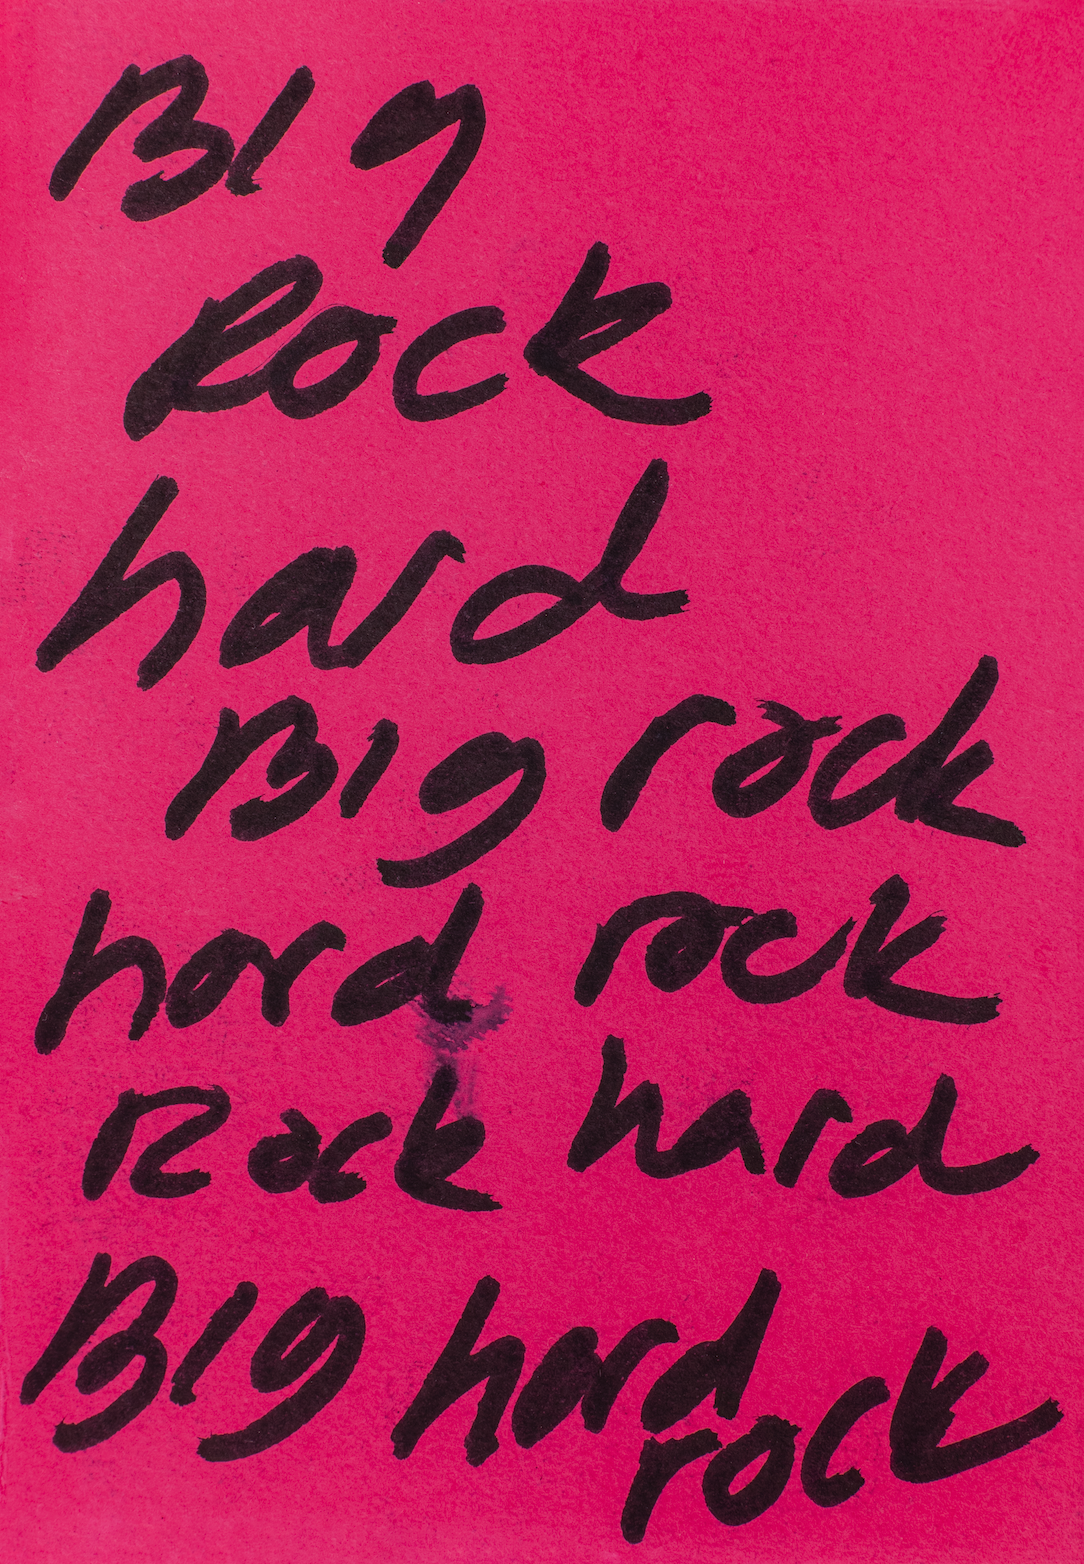 Big
Rock
hard
Big rock
hard rock
Rock hard
Big hard
rock